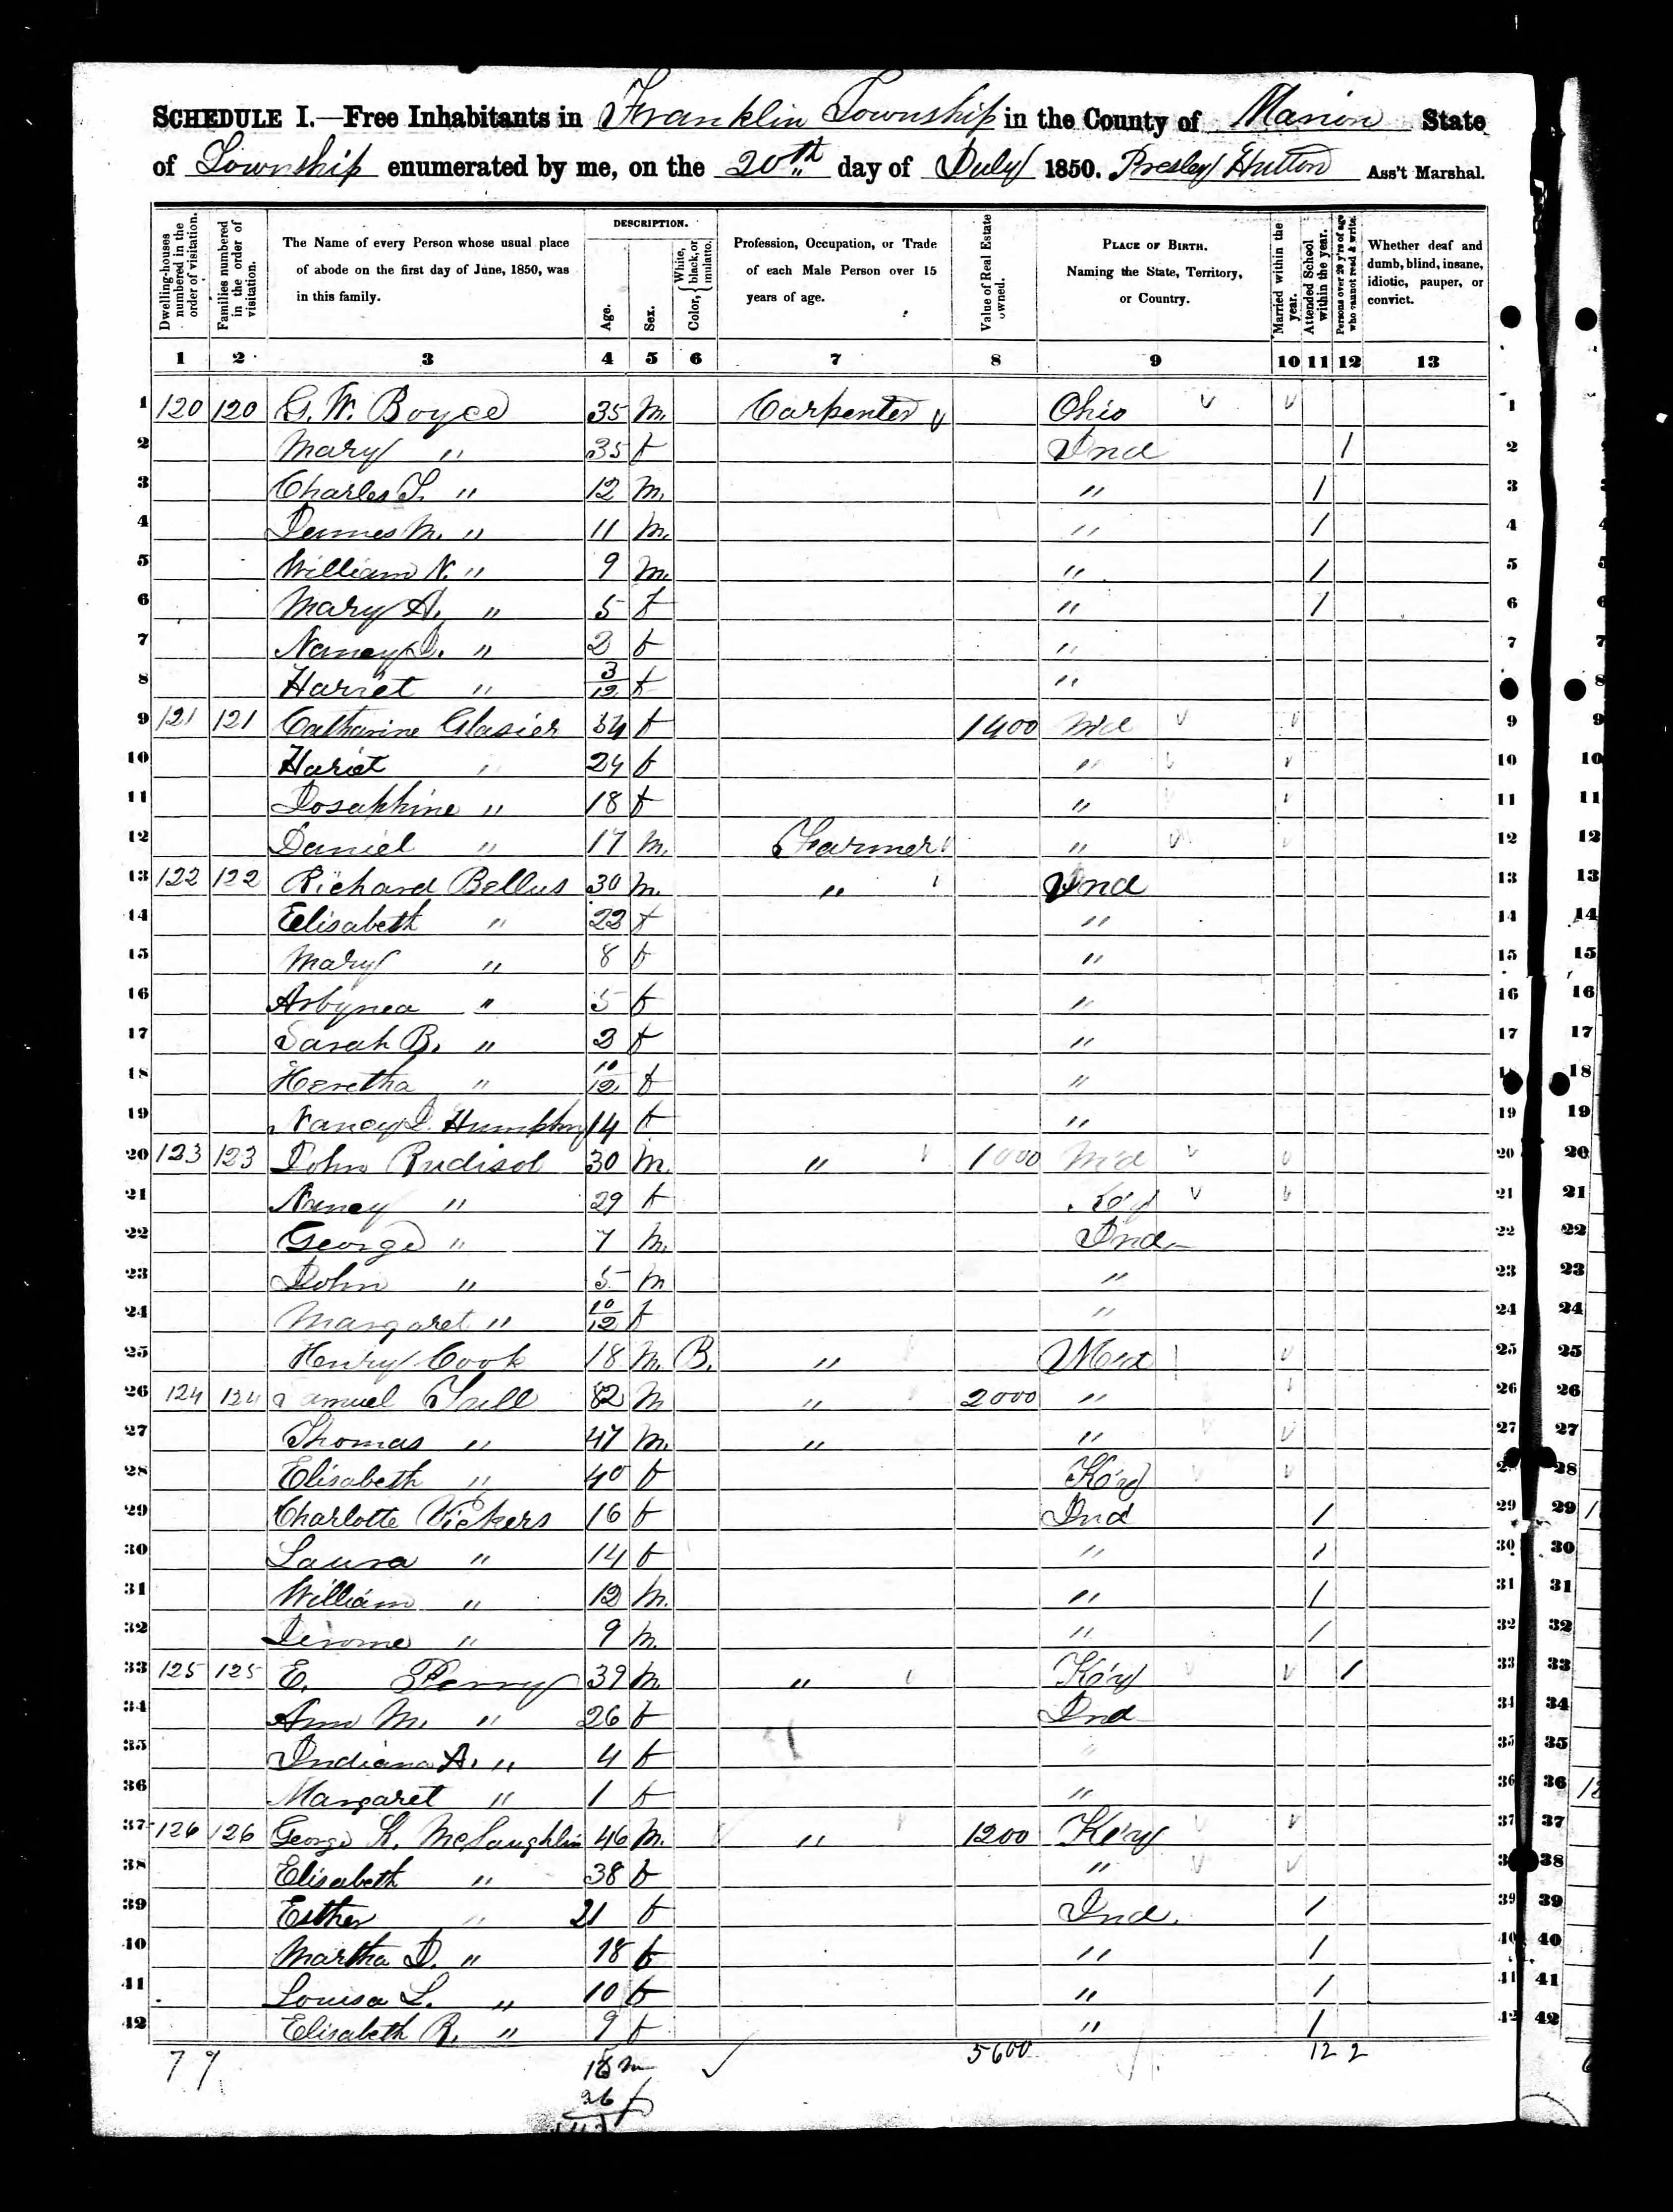 SCHEDULE I.—Free Inhabitants in Franklin Township in the County of Marion State
of Township enumerated by me, on the 20th day of July 1850. Presley Hutton Ass't Marshal.
Dwelling-houses numbered in the order of visitation.
Families numbered in the order of visitation.
The Name of every Person whose usual place of abode on the first day of June, 1850, was in this family.
DESCRIPTION.
Age.
Sex.
Color, { White, black, or mulatto.
Profession, Occupation, or Trade of each Male Person over 15 years of age.
Value of Real Estate owned.
PLACE OF BIRTH. Naming the State, Territory, or Country.
Married within the year.
Attended School within the year.
Persons over 20 y'rs of age who cannot read & write.
Whether deaf and dumb, blind, insane, idiotic, pauper, or convict.
1 2 3 4 5 6 7 8 9 10 11 12 13
1 120 120 G. W. Boyce 35 m. Carpenter Ohio 1
2 Mary " 35 f Ind 1 2
3 Charles " 12 m. " 1 3
4 James M. " 11 m. " 1 4
5 William N. " 9 m. " 1 5
6 Mary A. " 5 f " 1 6
7 Nancy J. " 2 f " 7
8 Harriet " 3/12 f " 8
9 121 121 Catharine Glasier 54 f 1400 Md 9
10 Hariet " 24 f " 10
11 Josephine " 18 f " 11
12 Daniel " 17 m. Farmer " 12
13 122 122 Richard Bellus 30 m. " Ind 13
14 Elisabeth " f " 14
15 Mary " 8 f " 15
16 Arbynea " 5 f " 16
17 Sarah B. " f " 17
18 Heretha " 10/12 f " 18
19 Nancy J. Humphry 14 f " 19
20 123 123 John Rudisol 30 m. " 1000 Md 20
21 Nancy " 29 f Ky 21
22 George " 7 m. Ind 22
23 John " 5 m " 23
24 Margaret " 10/12 f " 24
25 Henry Cook 18 m. B. " Md 25
26 124 124 Samuel 82 m " 2000 " 26
27 Thomas " 47 m. " " 27
28 Elisabeth " 40 f Ky 28
29 Charlotte Vickers 16 f Ind 1 29
30 Laura " 14 f " 1 30
31 William " 12 m. " 1 31
32 Jerome " 9 m. " 1 32
33 125 125 E. Perry 39 m. " Ky 1 33
34 Ann M. " 26 f Ind 34
35 Indiana A. " 4 f " 35
36 Margaret " 1 f " 36
37 126 126 George K. McLaughlin 46 m. " 1200 Ky 37
38 Elisabeth " 38 f " 38
39 Esther " 21 f Ind. 1 39
40 Martha J. " 18 f " 1 40
41 Louisa L. " 10 f " 1 41
42 Elisabeth R. " 9 f " 1 42
7 7 16 m 5600 12 2
26 f